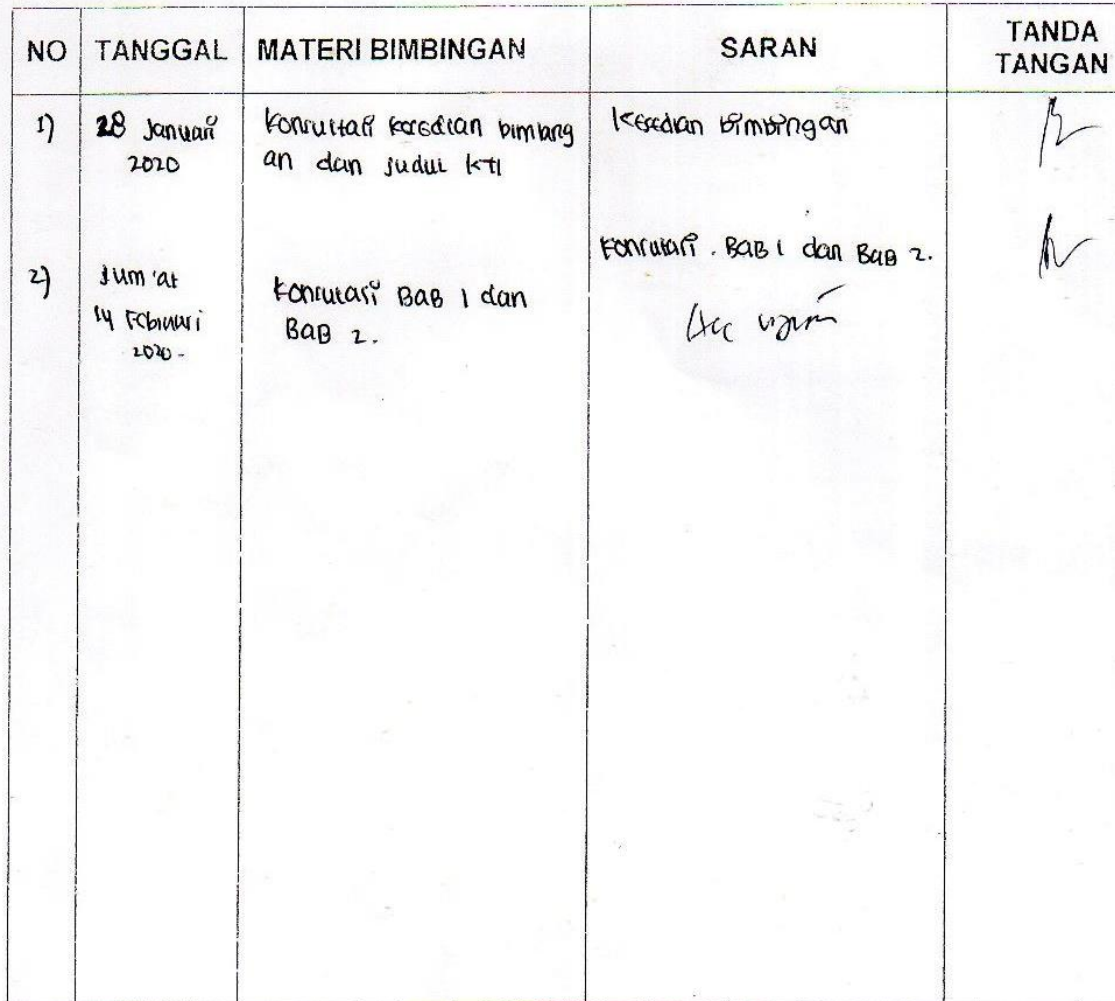 NO TANGGAL MATERI BIMBINGAN SARAN TANDA TANGAN
1) 28 Januari 2020
Konsultasi kesedian bimbing
an dan judul KTI
Kesedian bimbingan
2) Jum'at
14 Februari
2020-
Konsultasi BAB 1 dan
BAB 2.
Konsultasi . BAB 1 dan BAB 2.
Acc